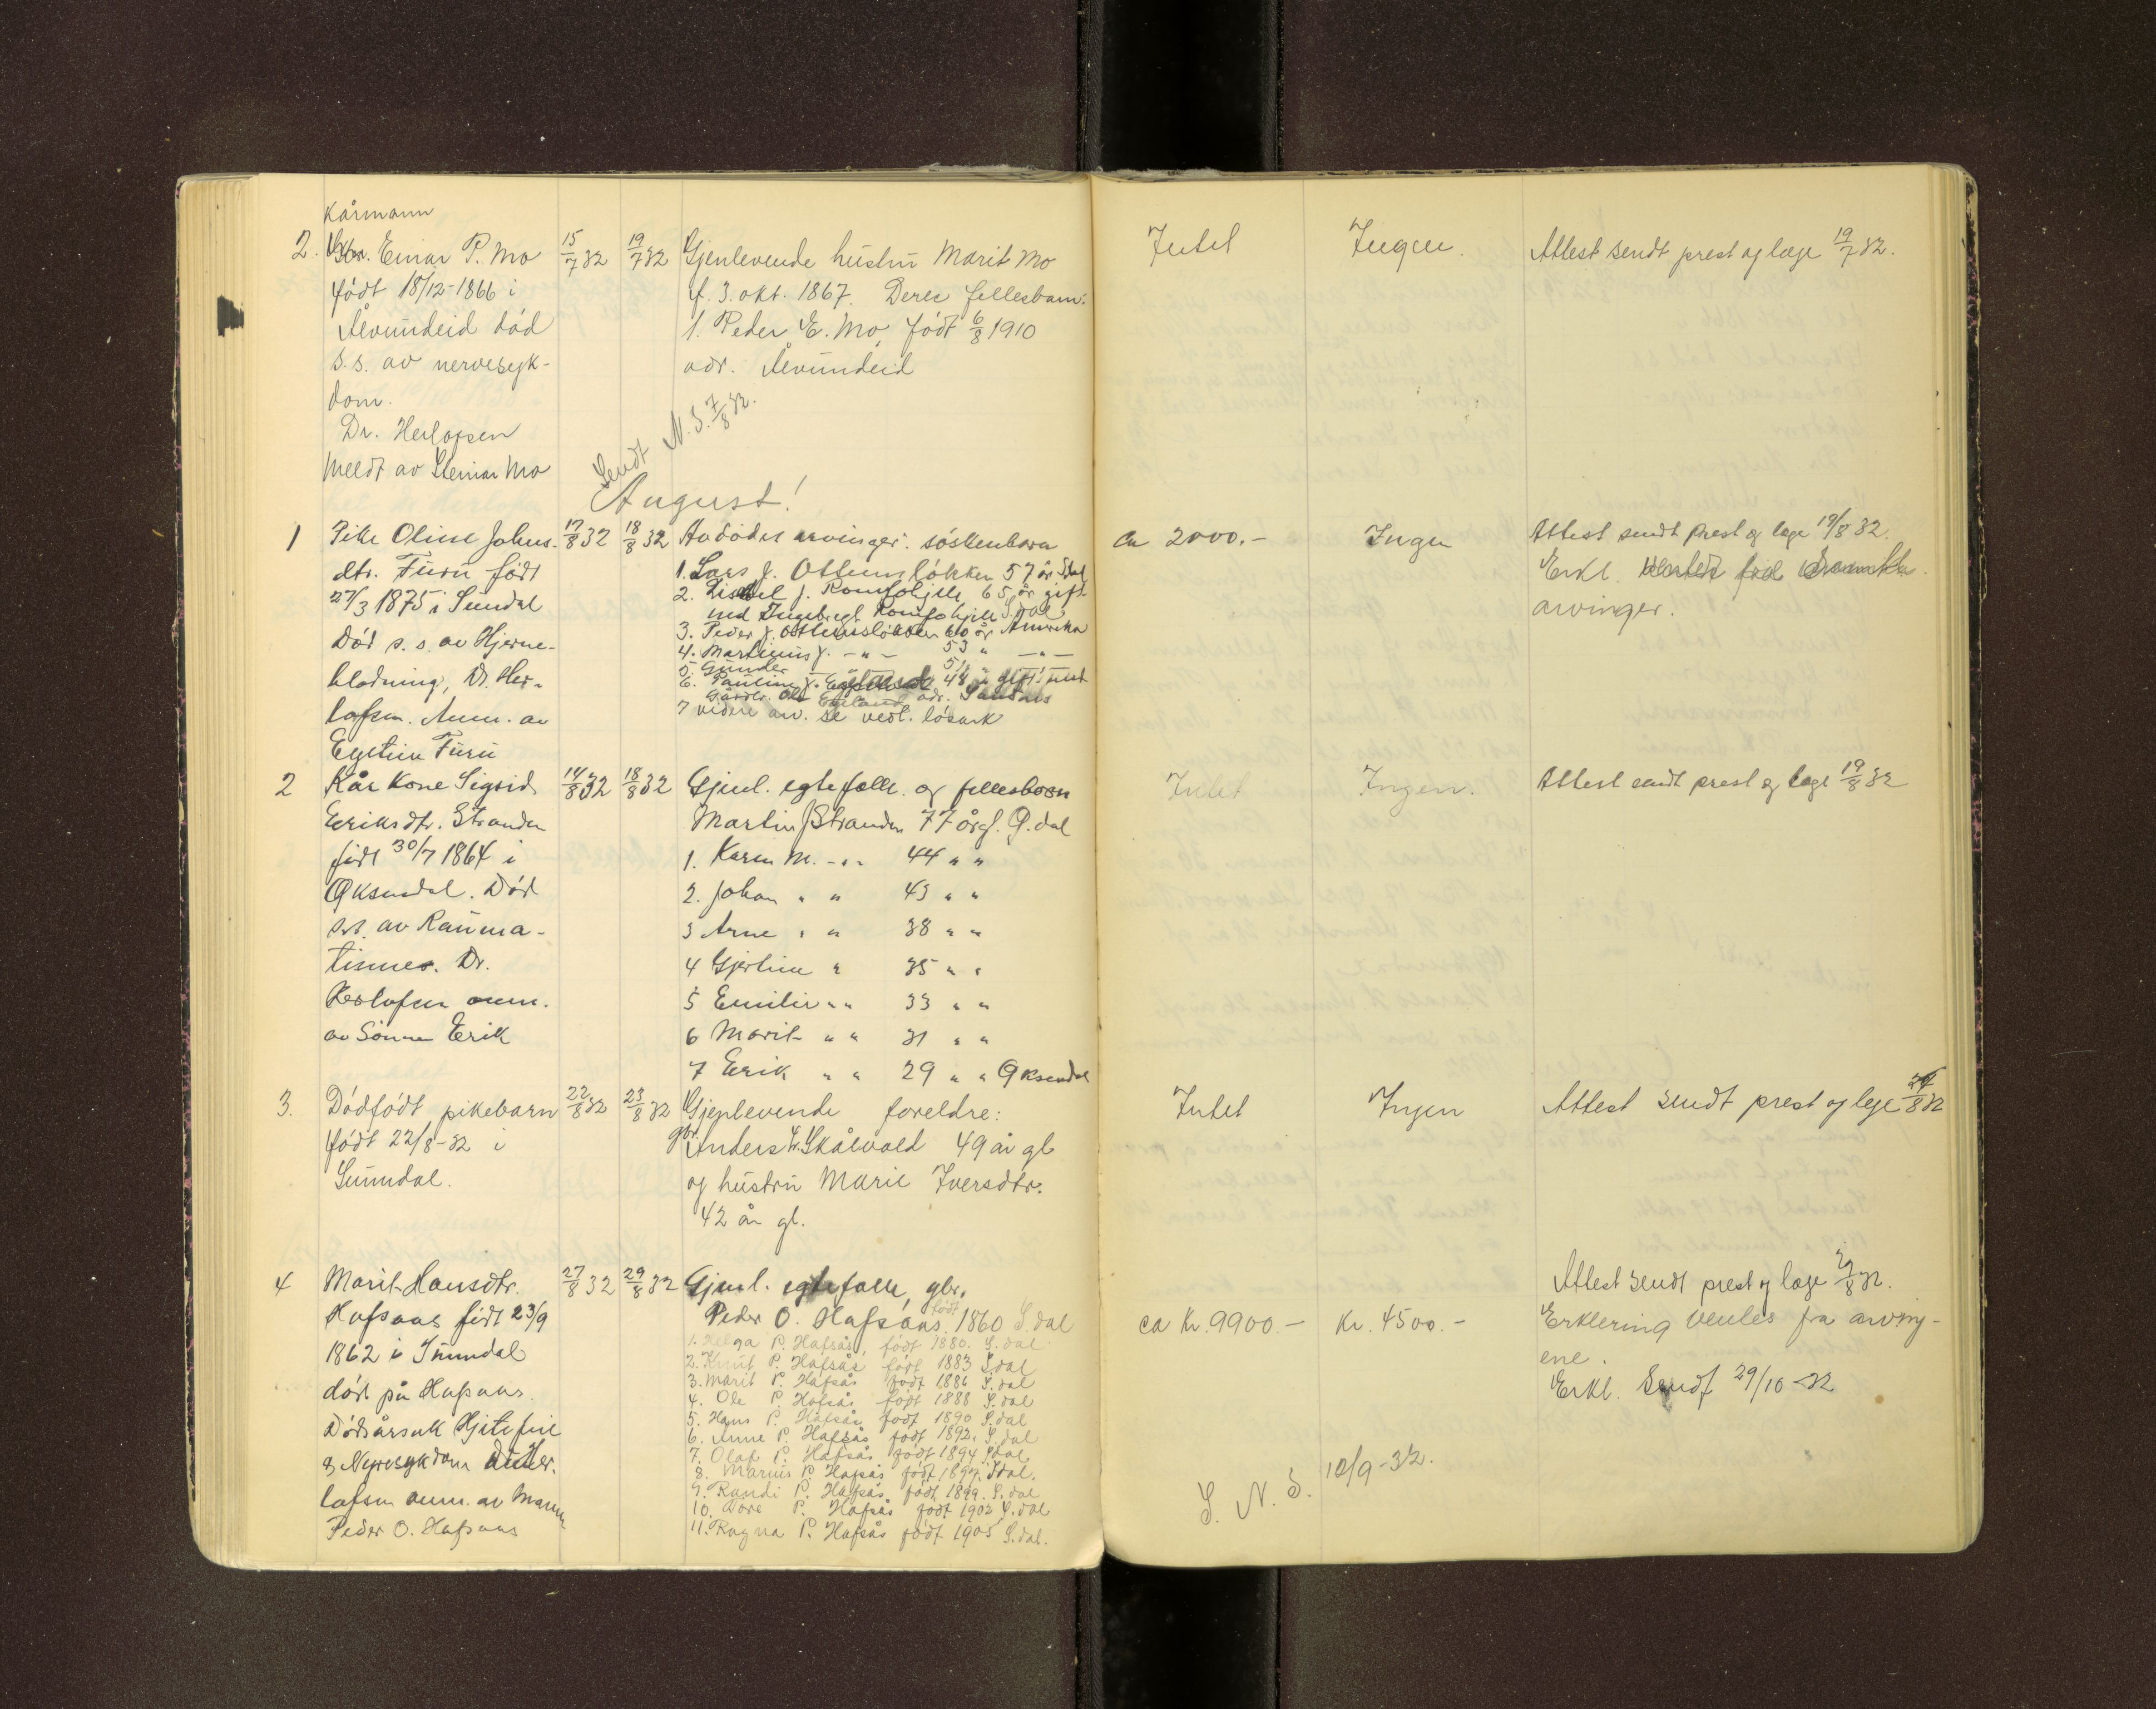 Kårmann
2. Einar P. Mo 15/7 32 19/7 32 Gjenlevende hustru Marit Mo Intet Ingen. Attest sendt prest og læge 19/7 32.
født 18/12-1866 i f. 3. okt. 1867. Deres fellesbarn:
Ålvundeid død 1. Peder E. Mo, født 6/8 1910
s.s. av nervesyk- adr. Ålvundeid
dom.
Dr. Herlofsen Sendt N.S. 7/8 32.
Meldt av Steinar Mo
August!
1 Pike Oline Johns. 17/8 32 18/8 32 Avdødes arvinger: søskenbarn ca 2000.- Ingen Attest sendt prest og læge 19/8 32.
dtr. Furu født 1. Lars J. Ottemsløkken 57 år S.dal Erkl.
27/3 1875 i Sundal 2. J. Romfohjell 65 år gift arvinger.
med Ingebrigt Romfohjell S.dal
Død s.s. av Hjerne- 3. Peder J. Ottemsløkken 60 år Amerika
4. Martinus J. -"- 53 " -"-
blødning, Dr. Her- 5. Gunder 51 "
6. Pauline J. 48 " gift med
lofsen. Anm. av Gårdbr. Ole adr. Sandnes
7 videre arv. se vedl. løsark
Furu
2 Kår Kone Sigrid 14/8 32 18/8 32 Gjenl. egtefælle og fellesbarn Intet Ingen. Attest sendt prest og læge 19/8 32
Eriksdtr. Stranden Martin J Stranden 77 år gl. Ø.dal
født 30/7 1864 i 1. Karen M. -"- 44 " "
Øksendal. Død 2. Johan " " 43 " "
s.s. av Rauma- 3 Arne " " 38 " "
tismes. Dr. 4 Gjertine " 35 " "
Herlofsen anm. 5 Emilie " " 33 " "
av Sønnen Erik 6 Marit " " 31 " "
7 Erik " " 29 " " Øksendal
3. Dødfødt pikebarn 22/8 32 23/8 32 Gjenlevende foreldre: Intet Ingen Attest sendt prest og læge 24/8 32
født 22/8-32 i gbr. Anders Skålvold 49 år gl
Sunndal. og hustru Marie Iversdtr.
42 år gl.
4 Marit Hansdtr. 27/8 32 29/8 32 Gjenl. egtefælle, gbr. Attest sendt prest og læge 29/8 32.
Hafsaas født 23/9 Peder O. Hafsaas født 1860 S.dal ca Kr. 9900.- Kr. 4500.- Erklering ventes fra arving-
1862 i Sunndal 1. Helga P. Hafsås, født 1880. S.dal ene.
2. Knut P. Hafsås født 1883 S.dal
død på Hafsaas. 3. Marit P. Hafsås født 1886 S.dal Erkl. Sendt 29/10-32
4. Ole P. Hafsås født 1888 S.dal
Dødsårsak Hjertefeil 5. Hans P. Hafsås født 1890 S.dal
6. Anne P. Hafsås født 1892. S.dal
& Nyresykdom Dr Her. 7. Olaf P. Hafsås født 1894 S.dal
8. Marius P Hafsås født 1897. S.dal. S. N. S. 10/9-32.
lofsen anm. av Mannen 9. Randi P. Hafsås født 1899. S.dal
10. Tore P. Hafsås født 1902 S.dal
Peder O. Hafsaas 11. Ragna P. Hafsås født 1905 S.dal.